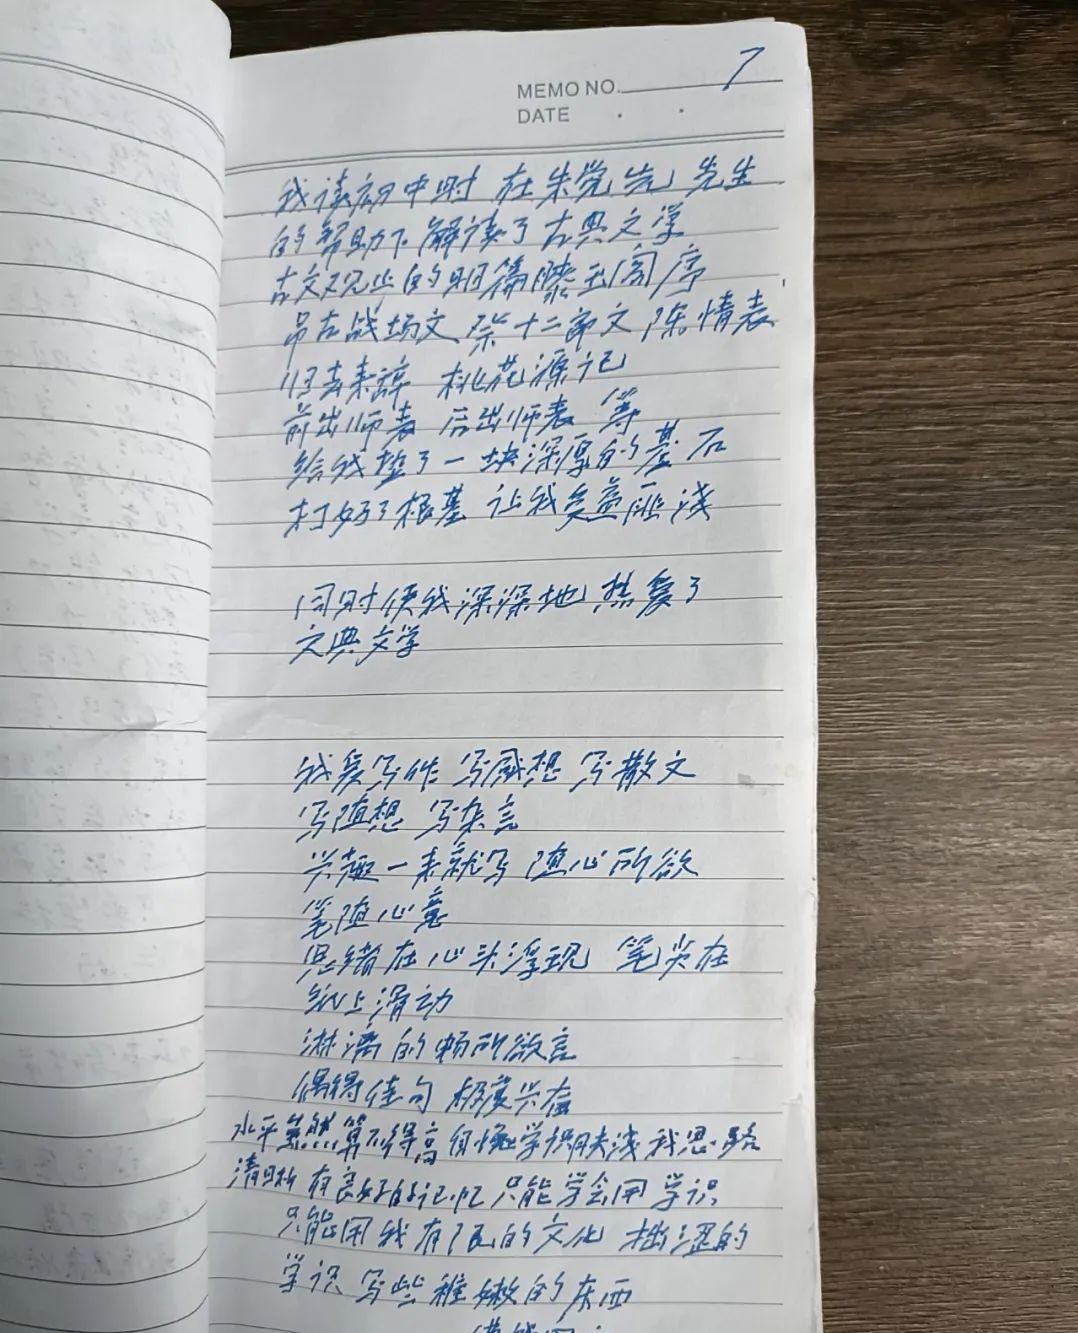 7
MEMO NO.
DATE
我读初中时 在朱党先 先生
的帮助下 解读了古典文学
古文观止的明篇 滕王阁序
吊古战场文 祭十二郎文 陈情表
归去来辞 桃花源记
前出师表 后出师表 等
给我垫了一块深厚的基石
打好了根基 让我受益匪浅
同时使我深深地 热爱了
文典文学
我爱写作 写感想 写散文
写随想 写杂言
兴趣一来就写 随心所欲
笔随心意
思绪在心头浮现 笔尖在
纸上滑动
淋漓的畅所欲言
偶得佳句 极度兴奋
水平虽然算不得高 自愧学识肤浅 我思路
清晰 有良好的记忆 只能学会用学识
只能用我有限的文化 拙涩的
学识 写些稚嫩的东西